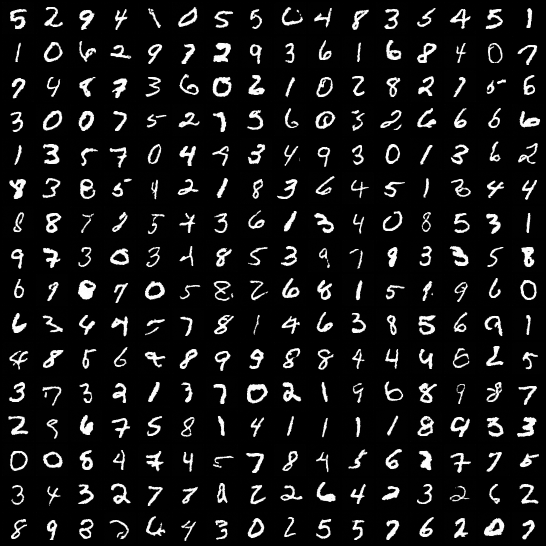 5 2 9 4 1 0 5 5 0 4 8 3 5 4 5 1
1 0 6 2 9 7 2 9 3 6 1 6 8 4 0 7
7 4 8 7 3 6 0 6 1 0 2 8 2 7 5 6
3 0 0 7 5 2 7 5 6 0 3 2 6 6 6 6
1 3 5 7 0 4 9 3 4 9 3 0 1 3 6 2
8 3 8 5 4 2 1 8 3 6 4 5 1 3 4 4
8 8 7 8 5 7 3 6 1 3 4 0 8 5 3 1
9 7 3 0 3 4 8 5 3 9 7 9 3 3 5 8
6 9 8 7 0 5 8 2 6 8 1 5 9 9 6 0
6 3 4 4 5 7 8 1 4 6 3 8 5 6 9 1
4 8 5 6 9 8 9 9 8 8 4 4 4 8 2 5
3 7 3 2 1 3 7 0 2 1 9 6 8 9 8 7
2 9 6 7 5 8 1 4 1 1 1 1 8 9 3 3
0 0 6 4 7 4 5 7 8 4 5 6 8 7 7 5
3 4 3 2 7 7 8 2 2 6 4 2 3 2 6 2
8 9 8 2 6 4 3 0 2 5 5 7 6 2 0 7